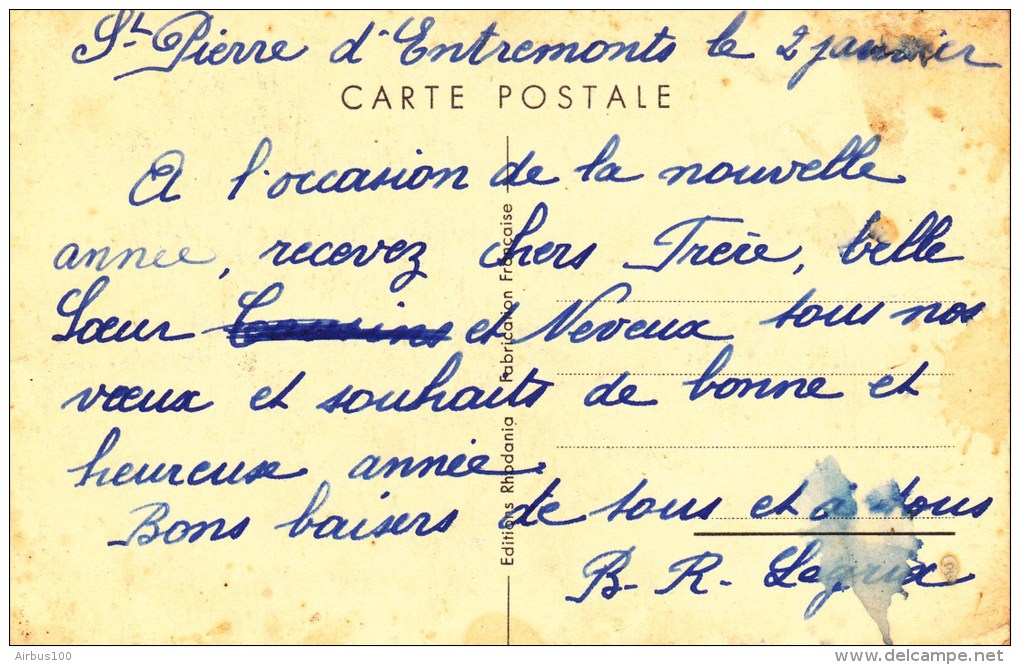 St Pierre d'Entremonts le 2 janvier
CARTE POSTALE
A l'occasion de la nouvelle
année, recevez chers Frère, belle
Sœur et Neveux tous nos
vœux et souhaits de bonne et
heureuse année.
Bons baisers de tous et à tous
B. R. Legrix
Editions Rhodania Fabrication Française
Airbus100
delcampe.net